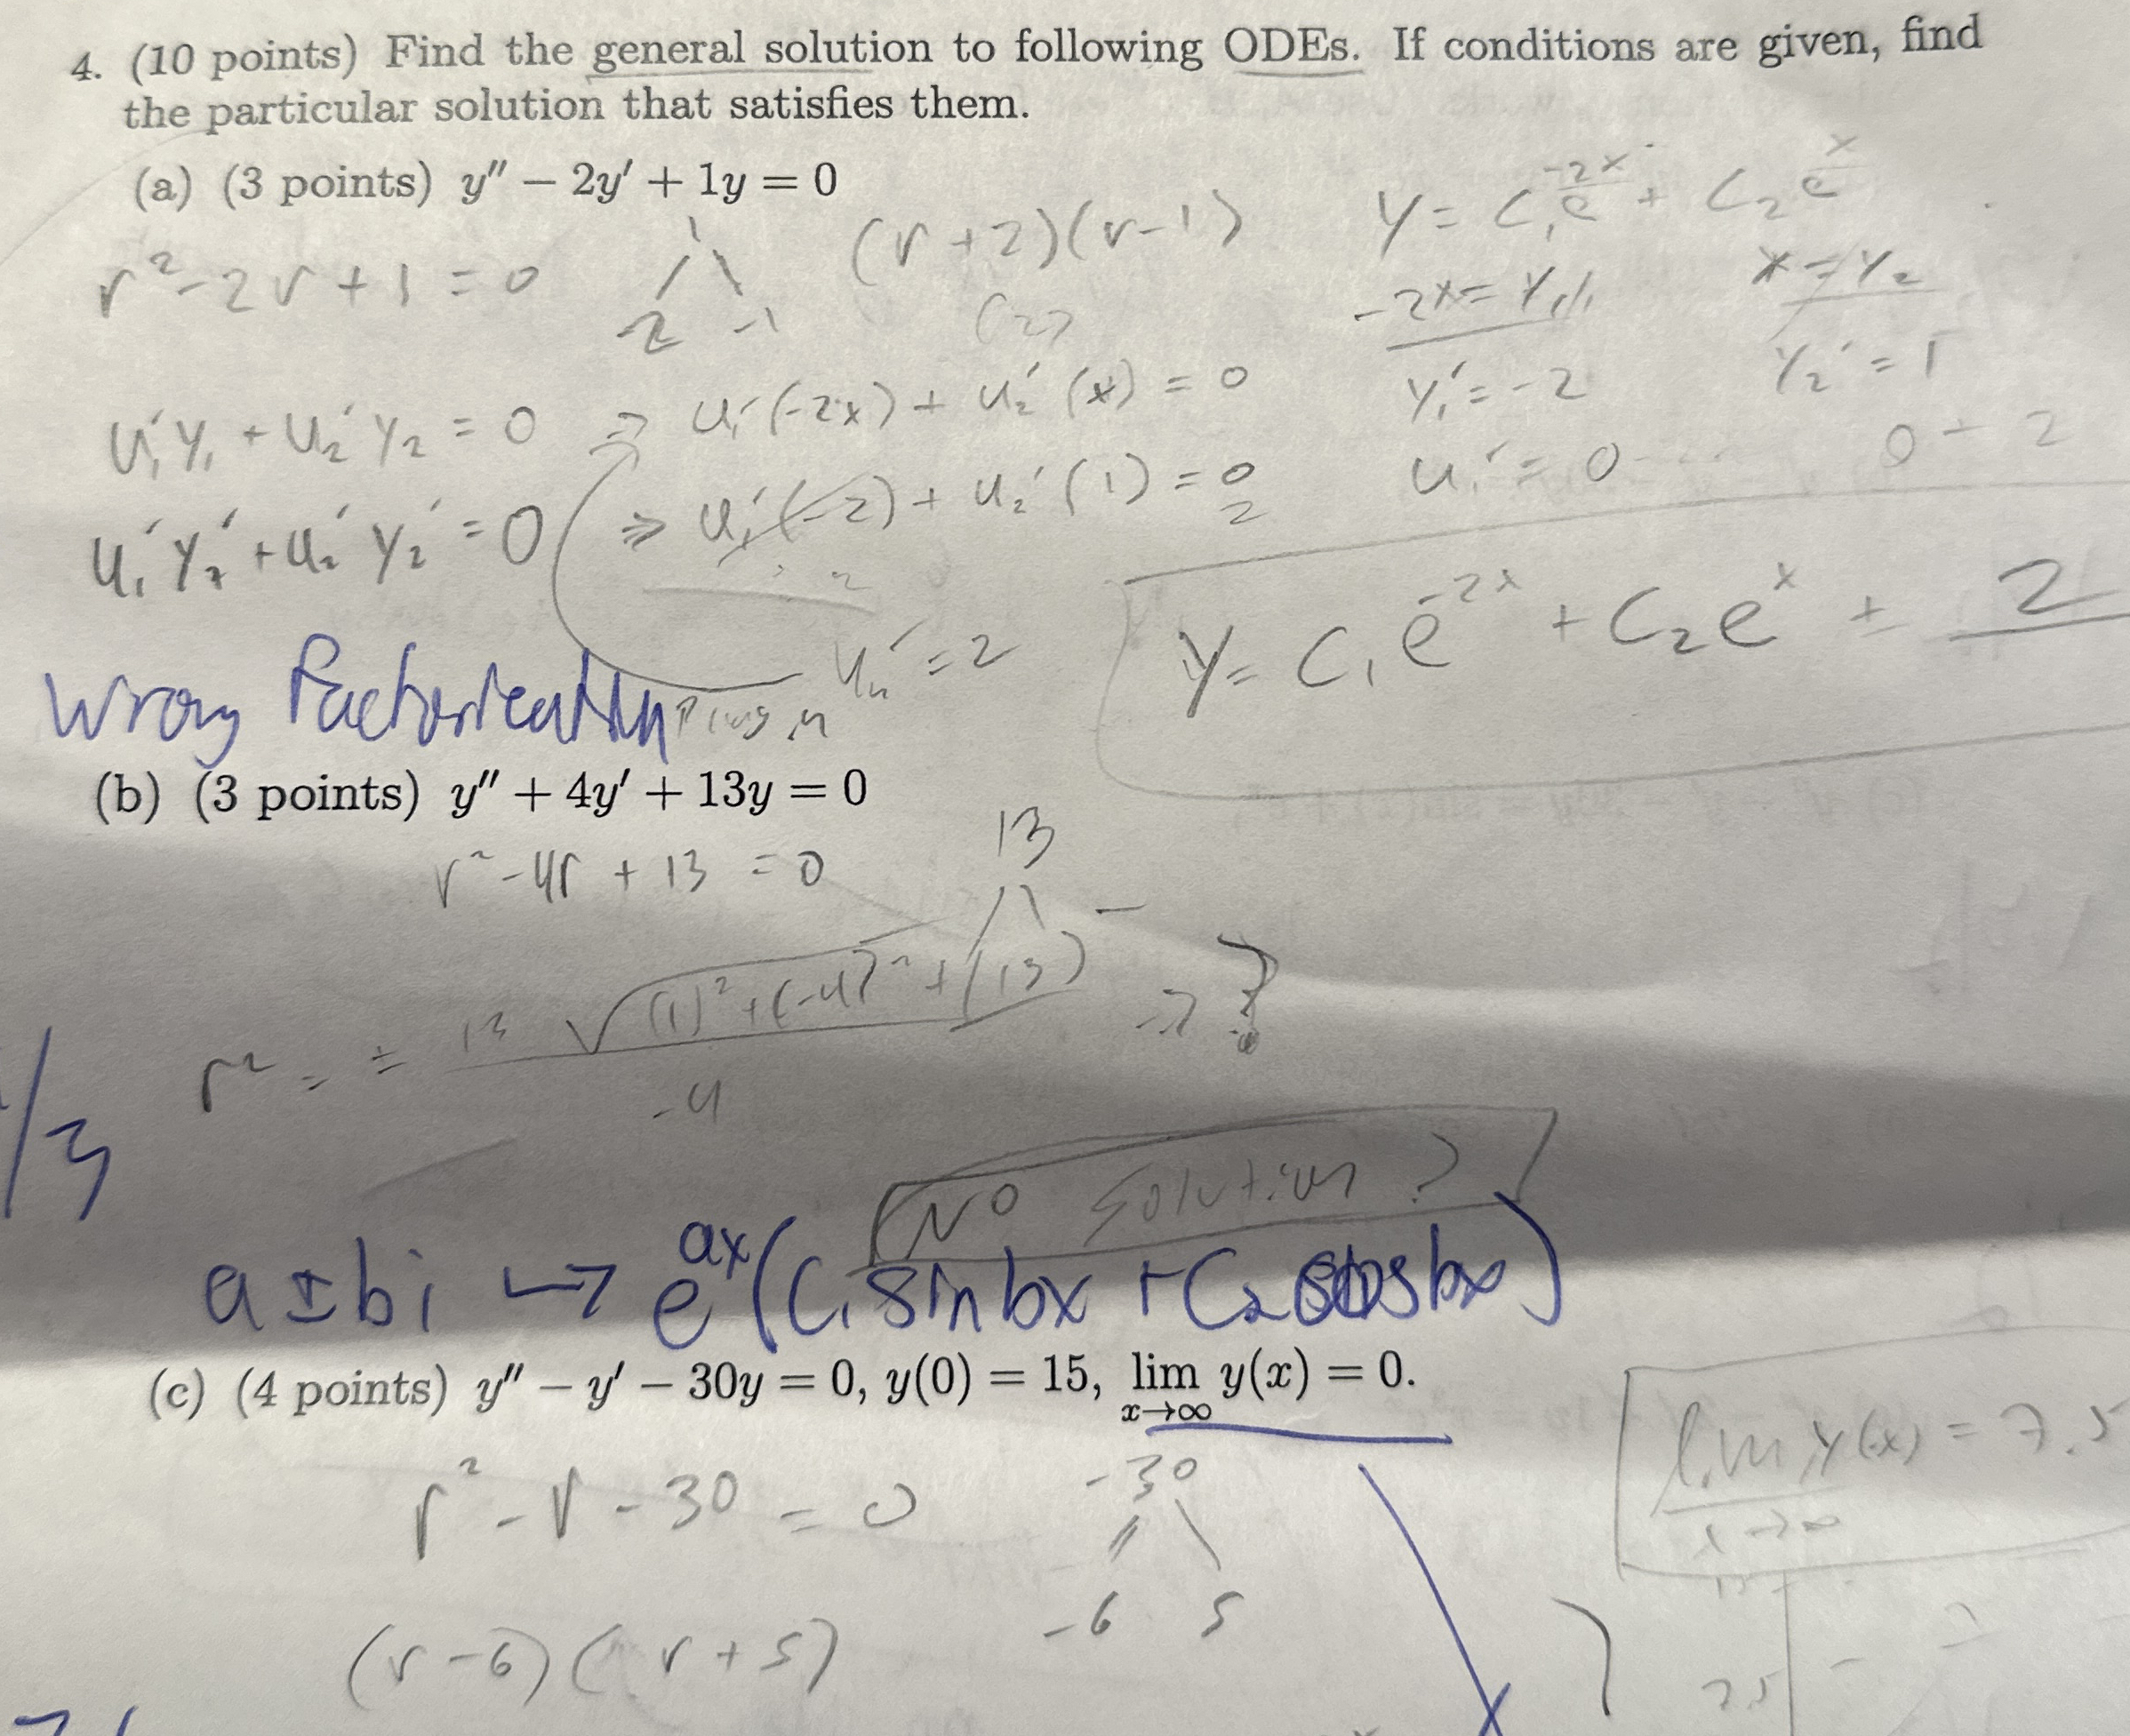 4. (10 points) Find the general solution to following ODEs. If conditions are given, find
the particular solution that satisfies them.
(a) (3 points) y″ − 2y′ + 1y = 0
r² - 2r + 1 = 0
1
-2 -1
(r + 2)(r - 1)
(2)
y = C₁e^(-2x) + C₂e^x
-2x = y₁
x = y₂
y₁′ = -2
y₂′ = 1
u₁′y₁ + u₂′y₂ = 0 ⇒ u₁′(-2x) + u₂′(x) = 0
u₁′ = 0
0 + 2
u₁′y₂′ + u₂′y₂′ = 0 ⇒ u₁′(-2) + u₂′(1) = 0
2
2
u₂′ = 2
Plug in
y = C₁e^(-2x) + C₂e^x + 2
Wrong factorization
(b) (3 points) y″ + 4y′ + 13y = 0
r² - 4r + 13 = 0
13
r² = = 13 √((1)² + (-4)² + (13)) / -4 → ?
/3
No solution ?
a ± bi ↦ e^(ax) (C₁ sin bx + C₂ cos bx)
(c) (4 points) y″ − y′ − 30y = 0, y(0) = 15, lim x→∞ y(x) = 0.
lim x→∞ y(x) = 7.5
r² - r - 30 = 0
-30
-6 5
(r - 6)(r + 5)
7.5